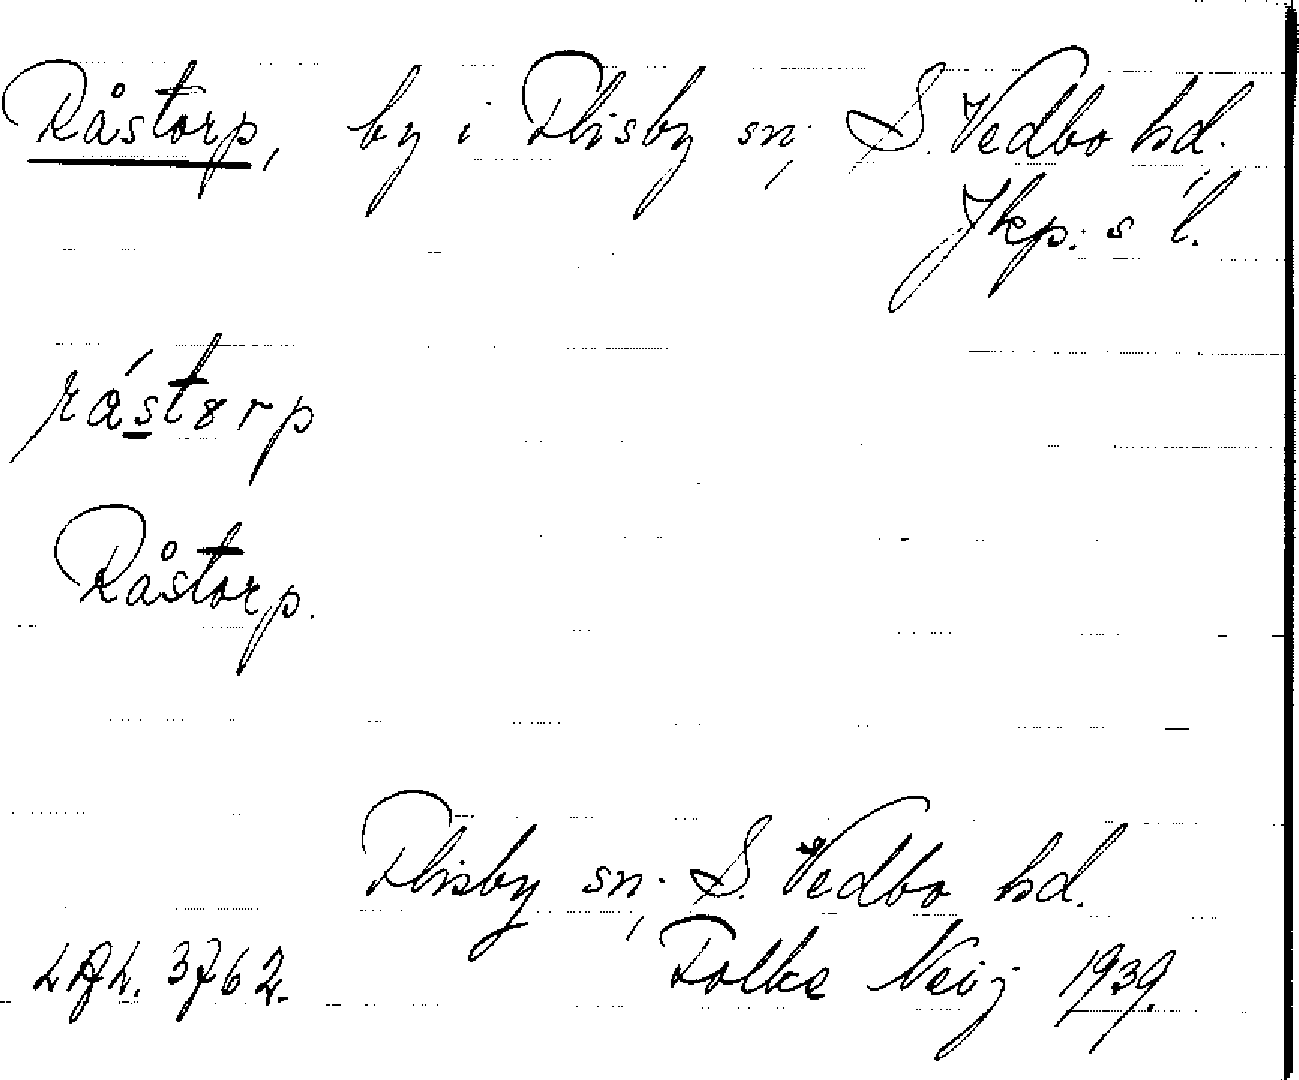 Råstorp, by i Flisby sn, S. Vedbo hd.
Jkp:s l.
rástɤrp
Råstorp.
Flisby sn, S. Vedbo hd.
3762. Folke Neij 1939.